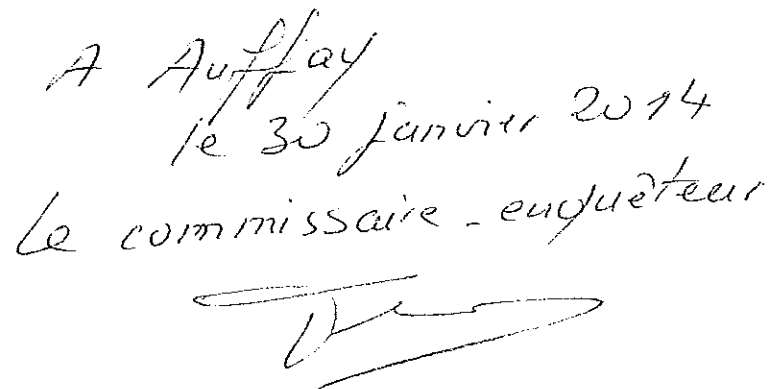 A Auffay
le 30 janvier 2014
Le commissaire - enquêteur